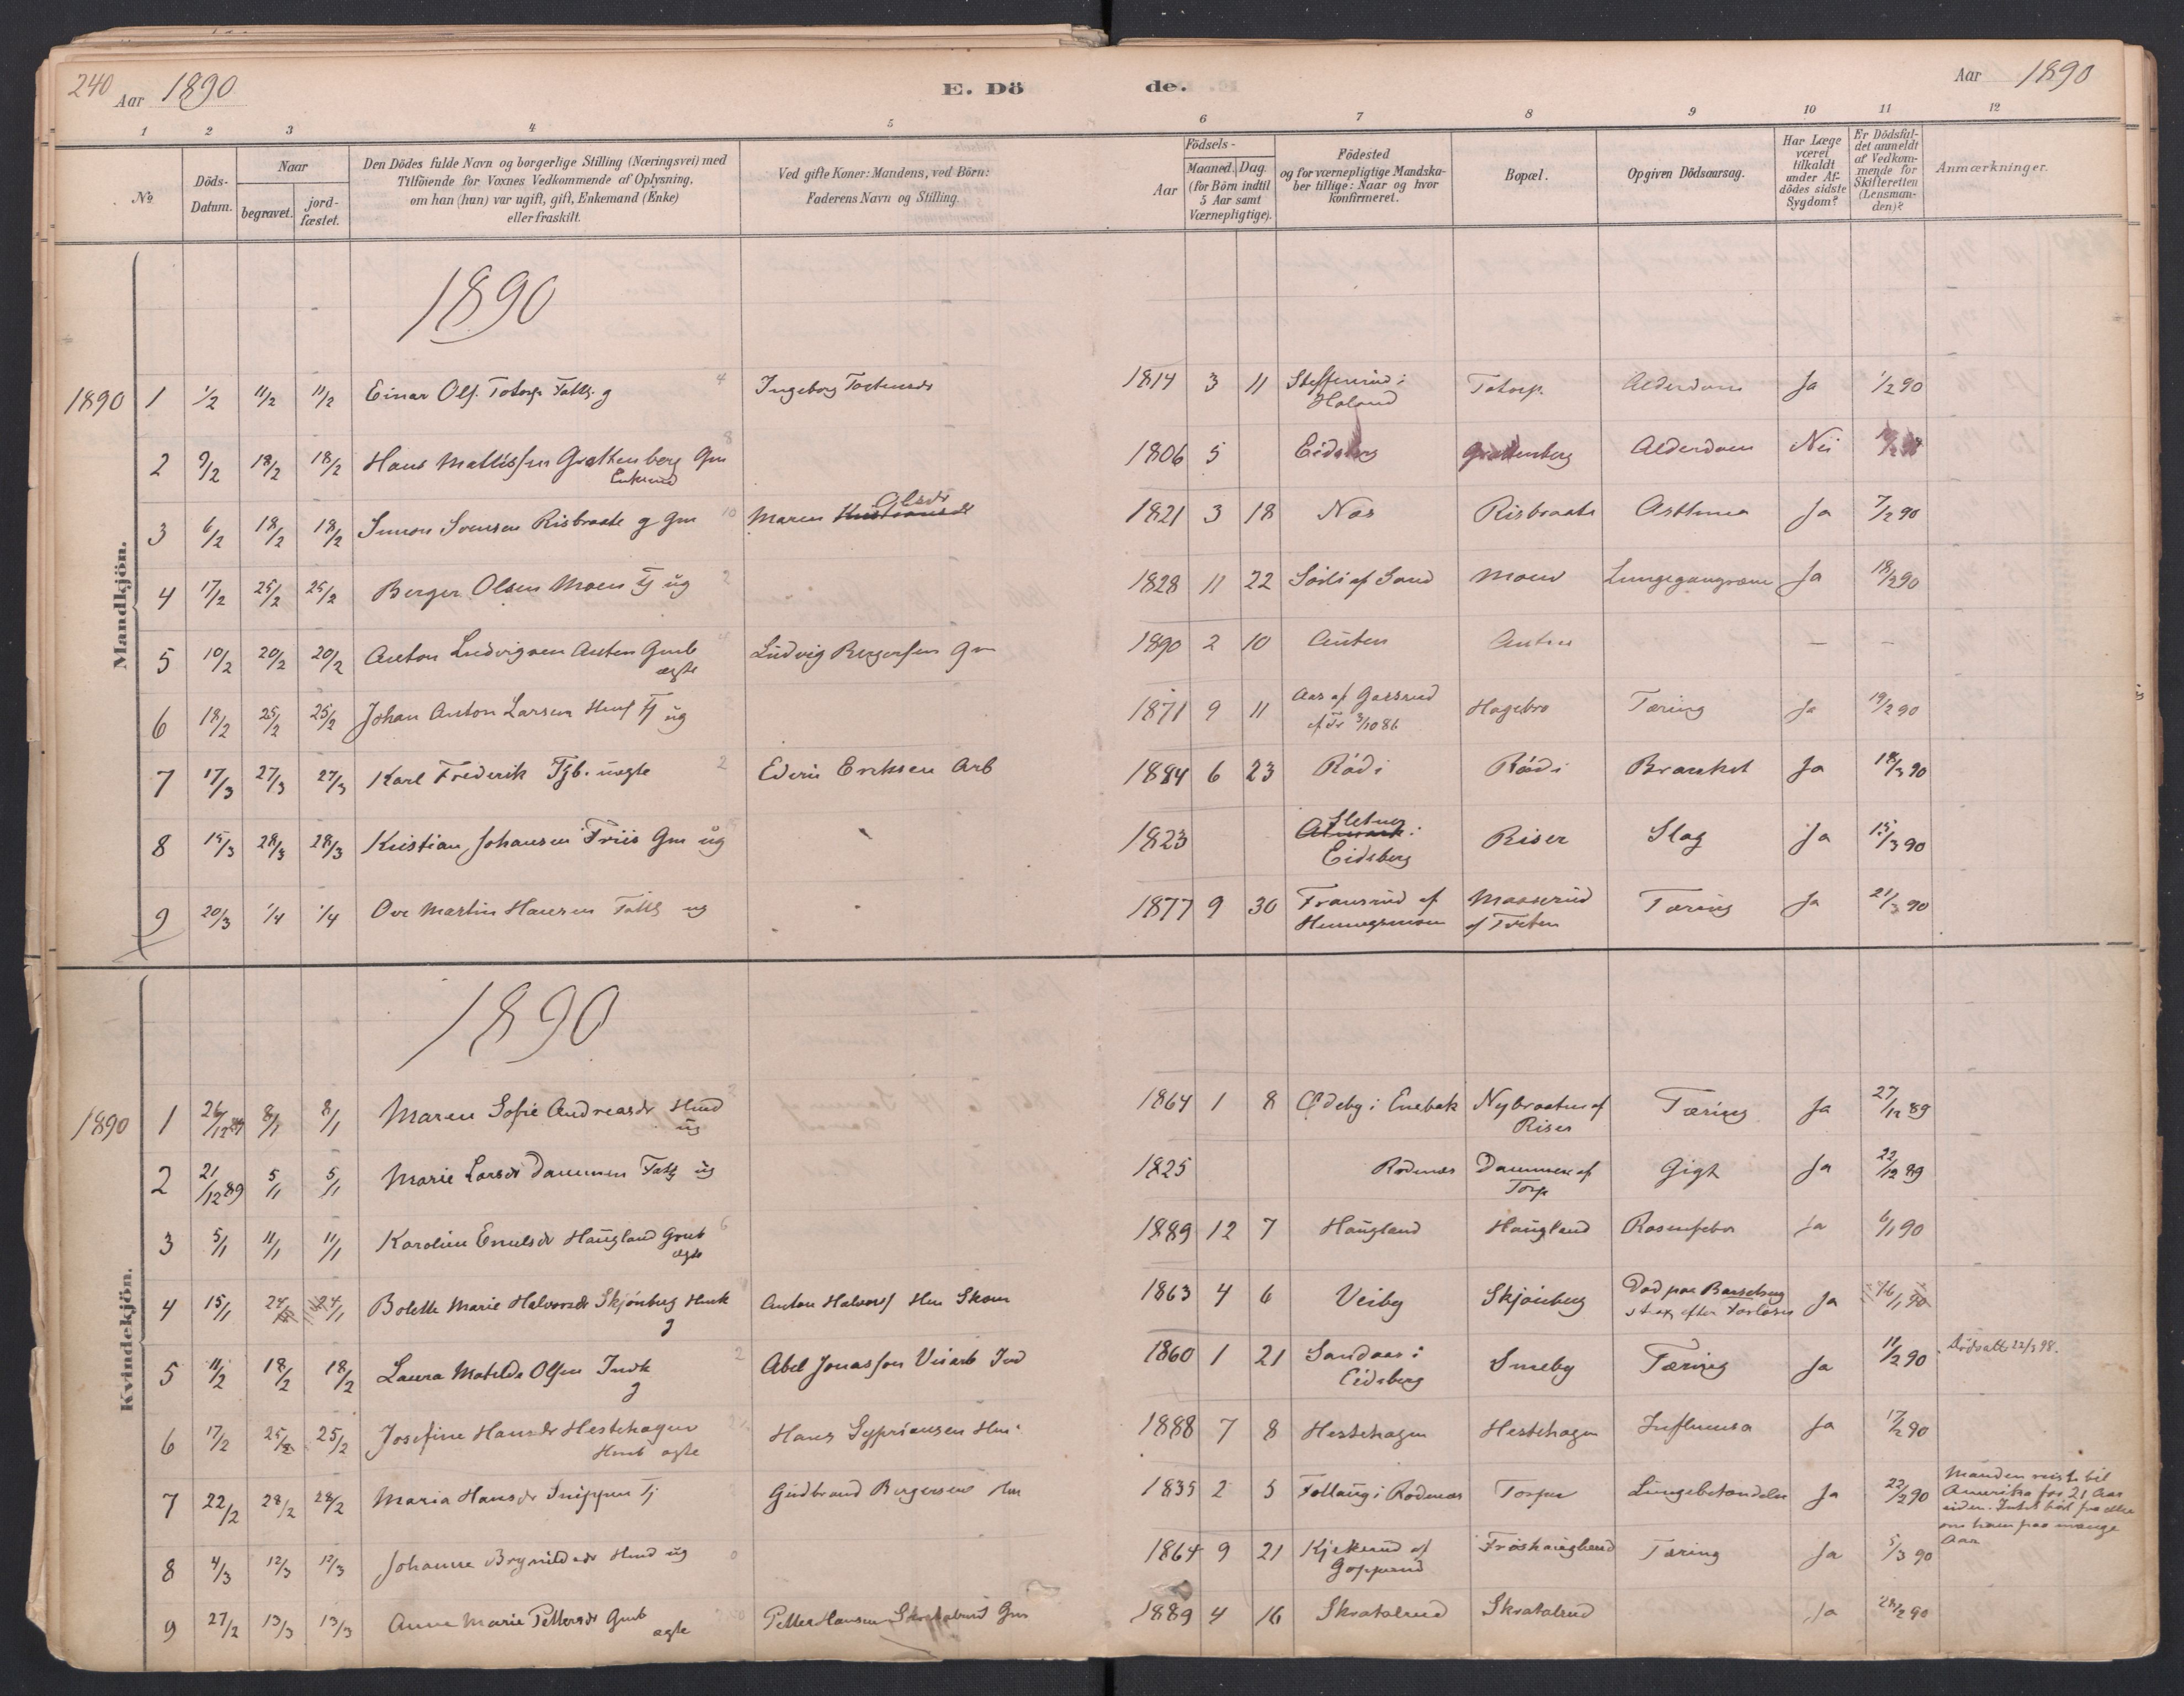 240 Aar 1890 E. Dö de. Aar 1890
1 2 3 4 5 6 7 8 9 10 11 12
No
Döds-Datum.
Naar
begravet.
jord-fæstet.
Den Dödes fulde Navn og borgerlige Stilling (Næringsvei) med
Tilföiende for Voxnes Vedkommende af Oplysning,
om han (hun) var ugift, gift, Enkemand (Enke)
eller fraskilt.
Ved gifte Koner: Mandens, ved Börn:
Faderens Navn og Stilling.
Födsels-
Aar
Maaned. Dag.
(for Börn indtil
5 Aar samt
Værnepligtige).
Födested
og for værnepligtige Mandska-
ber tillige: Naar og hvor
konfirmeret.
Bopæl.
Opgiven Dödsaarsag.
Har Læge
været
tilkaldt
under Af-
dödes sidste
Sygdom?
Er Dödsfal-
det anmeldt
af Vedkom-
mende for
Skifteretten
(Lensman-
den)?
Anmærkninger.
Mandkjön.
1890
1890 1 1/2 11/2 11/2 Einar Ols. Totorp Fattg. g 4 Ingeborg 1814 3 11 Steffensrud i Totorp. Alderdom Ja 1/2 90
Höland
2 9/2 18/2 18/2 Hans Mathissen Grøttenberg Gm 8 1806 5 Eidsberg Grøttenberg Alderdom Nei
Enkemd
3 6/2 18/2 18/2 Simon Svensen Risbraate g Gm 10 Maren Kristiansdr Olsdr 1821 3 18 Nos Risbraate Asthma Ja 7/2 90
4 17/2 25/2 25/2 Berger Olsen Moen Tj ug 2 1828 11 22 Sörli af Sand Moen Lungegangræne Ja 18/2 90
5 10/2 20/2 20/2 Anton Ludvigsen Auten Gmb 4 Ludvig Bergersen Gm 1890 2 10 Auten Auten — —
ægte
6 18/2 25/2 25/2 Johan Anton Larsen Hms Tj ug 1871 9 11 Aas af Gaasrud Hagebro Tæring Ja 19/2 90
3/10 86
7 17/3 27/3 27/3 Karl Frederik Tjb. uægte 2 Edvin Eriksen Arb 1884 6 23 Rödi Rödi Brauskot Ja 18/3 90
8 15/3 28/3 28/3 Kristian Johansen Friis Gm ug 1823 Sletner i Riser Slag Ja 15/3 90
Eidsberg
9 20/3 1/4 1/4 Ove Martin Hansen Fattg ug 1877 9 30 Fransrud af Maaserud Tæring Ja 21/3 90
Hennegsmoen af Torten
Kvindekjön.
1890
1890 1 26/12 89 8/1 8/1 Maren Sofie Andreasdr Hmd 1864 1 8 Ødeby i Enebak Nybraaten af Tæring Ja 27/12 89
ug Riser
2 21/12 89 5/1 5/1 Marie Larsdr Dammen Fattg ug 1825 Rödenæs Dammen af Gigt Ja 22/12 89
Torp
3 5/1 11/1 11/1 Karoline Emilsdr Haugland Gmb 6 1889 12 7 Haugland Haugland Rosenfeber Ja 6/1 90
ægte
4 15/1 24/1 24/1 Bolette Marie Halvorsdr Skjönberg Hmk Anton Halvors Hm Skom 1863 4 6 Veiby Skjönberg Död paa Barselseng Ja 16/1 90
g strax efter Forløsn
5 11/2 18/2 18/2 Laura Matilde Olsen Indk 2 Abel Jonassen Veiarb Ind 1860 1 21 Sandaas i Smeby Tæring Ja 11/2 90 Dödsatt 22/3 98.
g Eidsberg
6 17/2 25/2 25/2 Josefine Hansdr Hestehagen Hans Sypriansen Hm 1888 7 8 Hestehagen Hestehagen Influensa Ja 17/2 90
Hmb ægte
7 22/2 28/2 28/2 Maria Hansdr Snippen Tj Gudbrand Bergersen Hm 1835 2 5 Follaug i Rödenæs Torper Lungebetændelse Ja 22/2 90 Manden reiste til
Amerika for 21 Aar
siden. Intet hört fra eller
om ham paa mange
Aar
8 4/3 12/3 12/3 Johanne Brynildsdr Hmd ug 0 1864 9 21 Kjekerud af Fröshaugland Tæring Ja 5/3 90
Gopperud
9 27/2 13/3 13/3 Anne Marie Pettersdr Gmb Petter Hansen Skratalrud Gm 1889 4 16 Skratalrud Skratalrud Ja 28/2 90
ægte